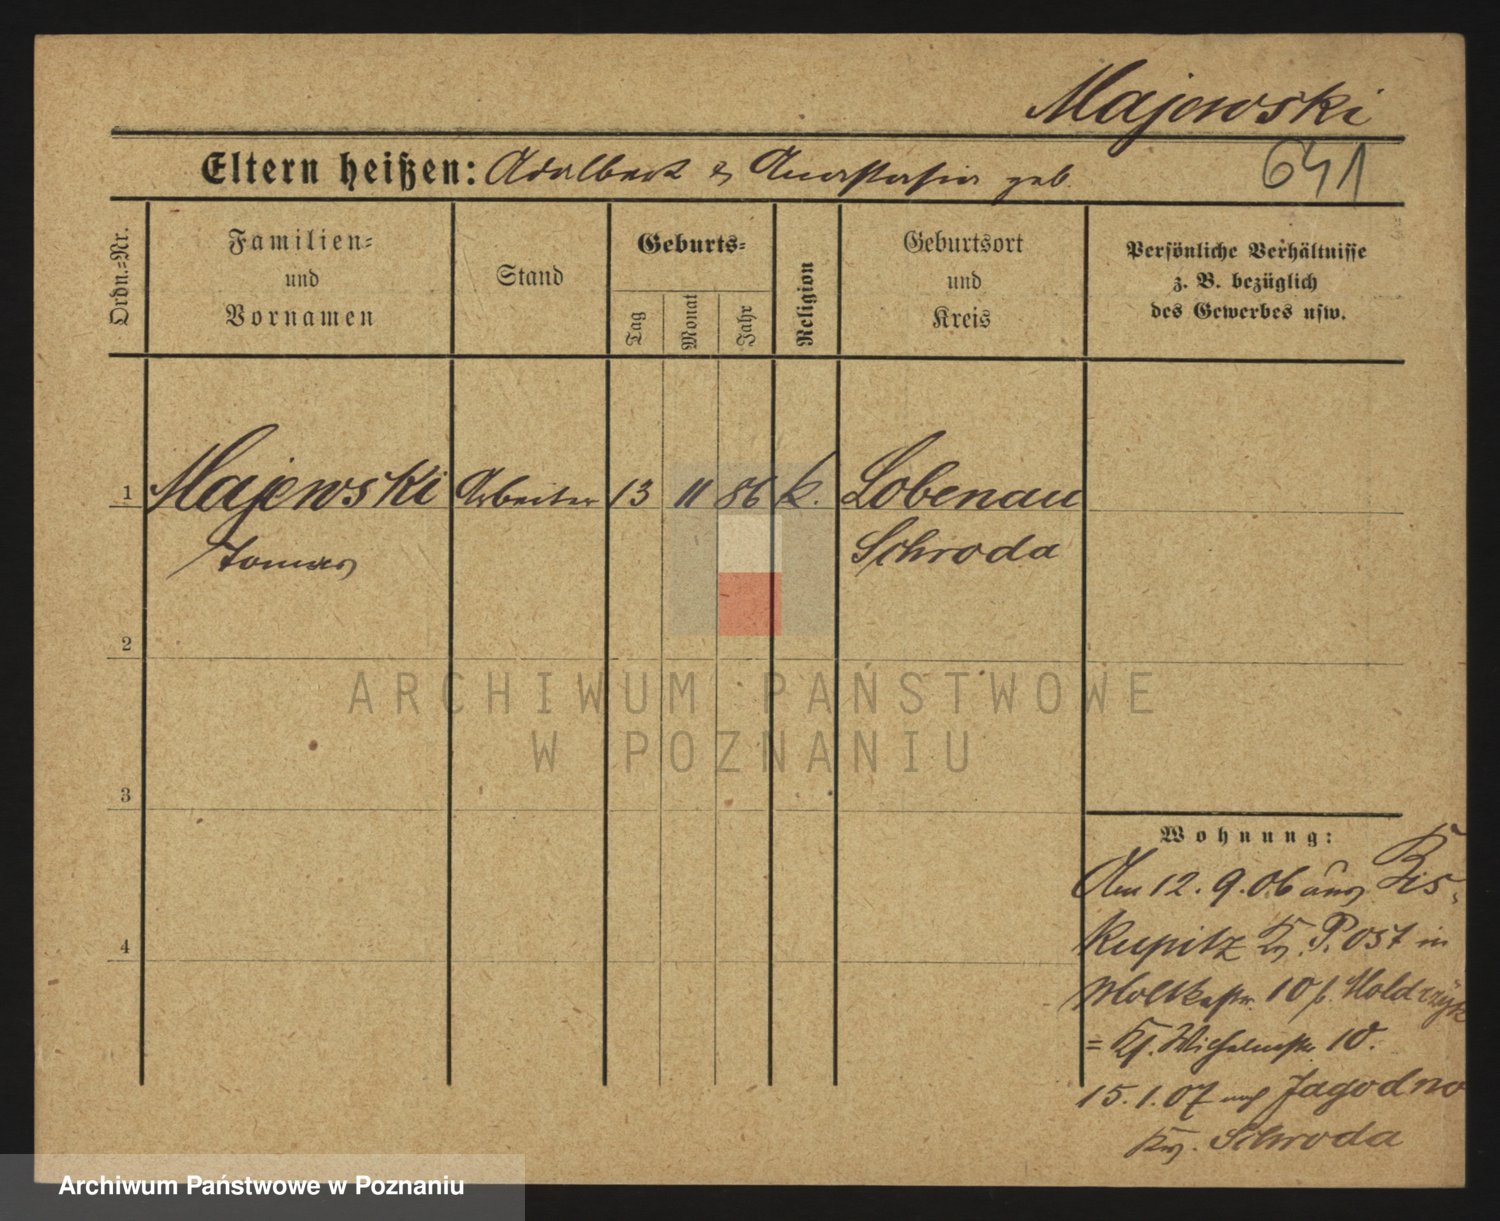 Majewski
641
Eltern heißen: Adalbert & Anastasia geb.
Ordn.=Nr.
Familien=
und
Vornamen
Stand
Geburts=
Tag
Monat
Jahr
Religion
Geburtsort
und
Kreis
Persönliche Verhältnisse
z. B. bezüglich
des Gewerbes usw.
1 Majewski Arbeiter 13 11 86 k. Lobenau
Tomas Schroda
2
3
4
Wohnung:
Am 12.9.06 aus Bis-
kupitz Kr. P. Ost in
Moltkestr. 10 b.
= Wilhelmstr. 10.
15.1.07 nach Jagodno
Kr. Schroda
ARCHIWUM PAŃSTWOWE
W POZNANIU
Archiwum Państwowe w Poznaniu